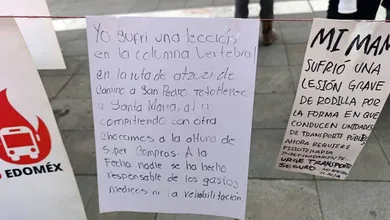 Yo sufrí una lección
en la columna vertebral
en la ruta de
camino a San Pedro Totoltepec
a Santa María, al ir
compitiendo con otra
chocamos a la altura de
Super Compras. A la
Fecha nadie se ha hecho
responsable de los gastos
medicos ni la rehabilitación
MI MAM
SUFRIÓ UNA
LESIÓN GRAVE
DE RODILLA POR
LA FORMA EN QUE
CONDUCEN UNIDADES
DE TRANSPORTE PÚBLIC
AHORA REQUIERE
FISIOTERAPIA
URGE TRANSPORTE
SEGURO
EDOMÉX